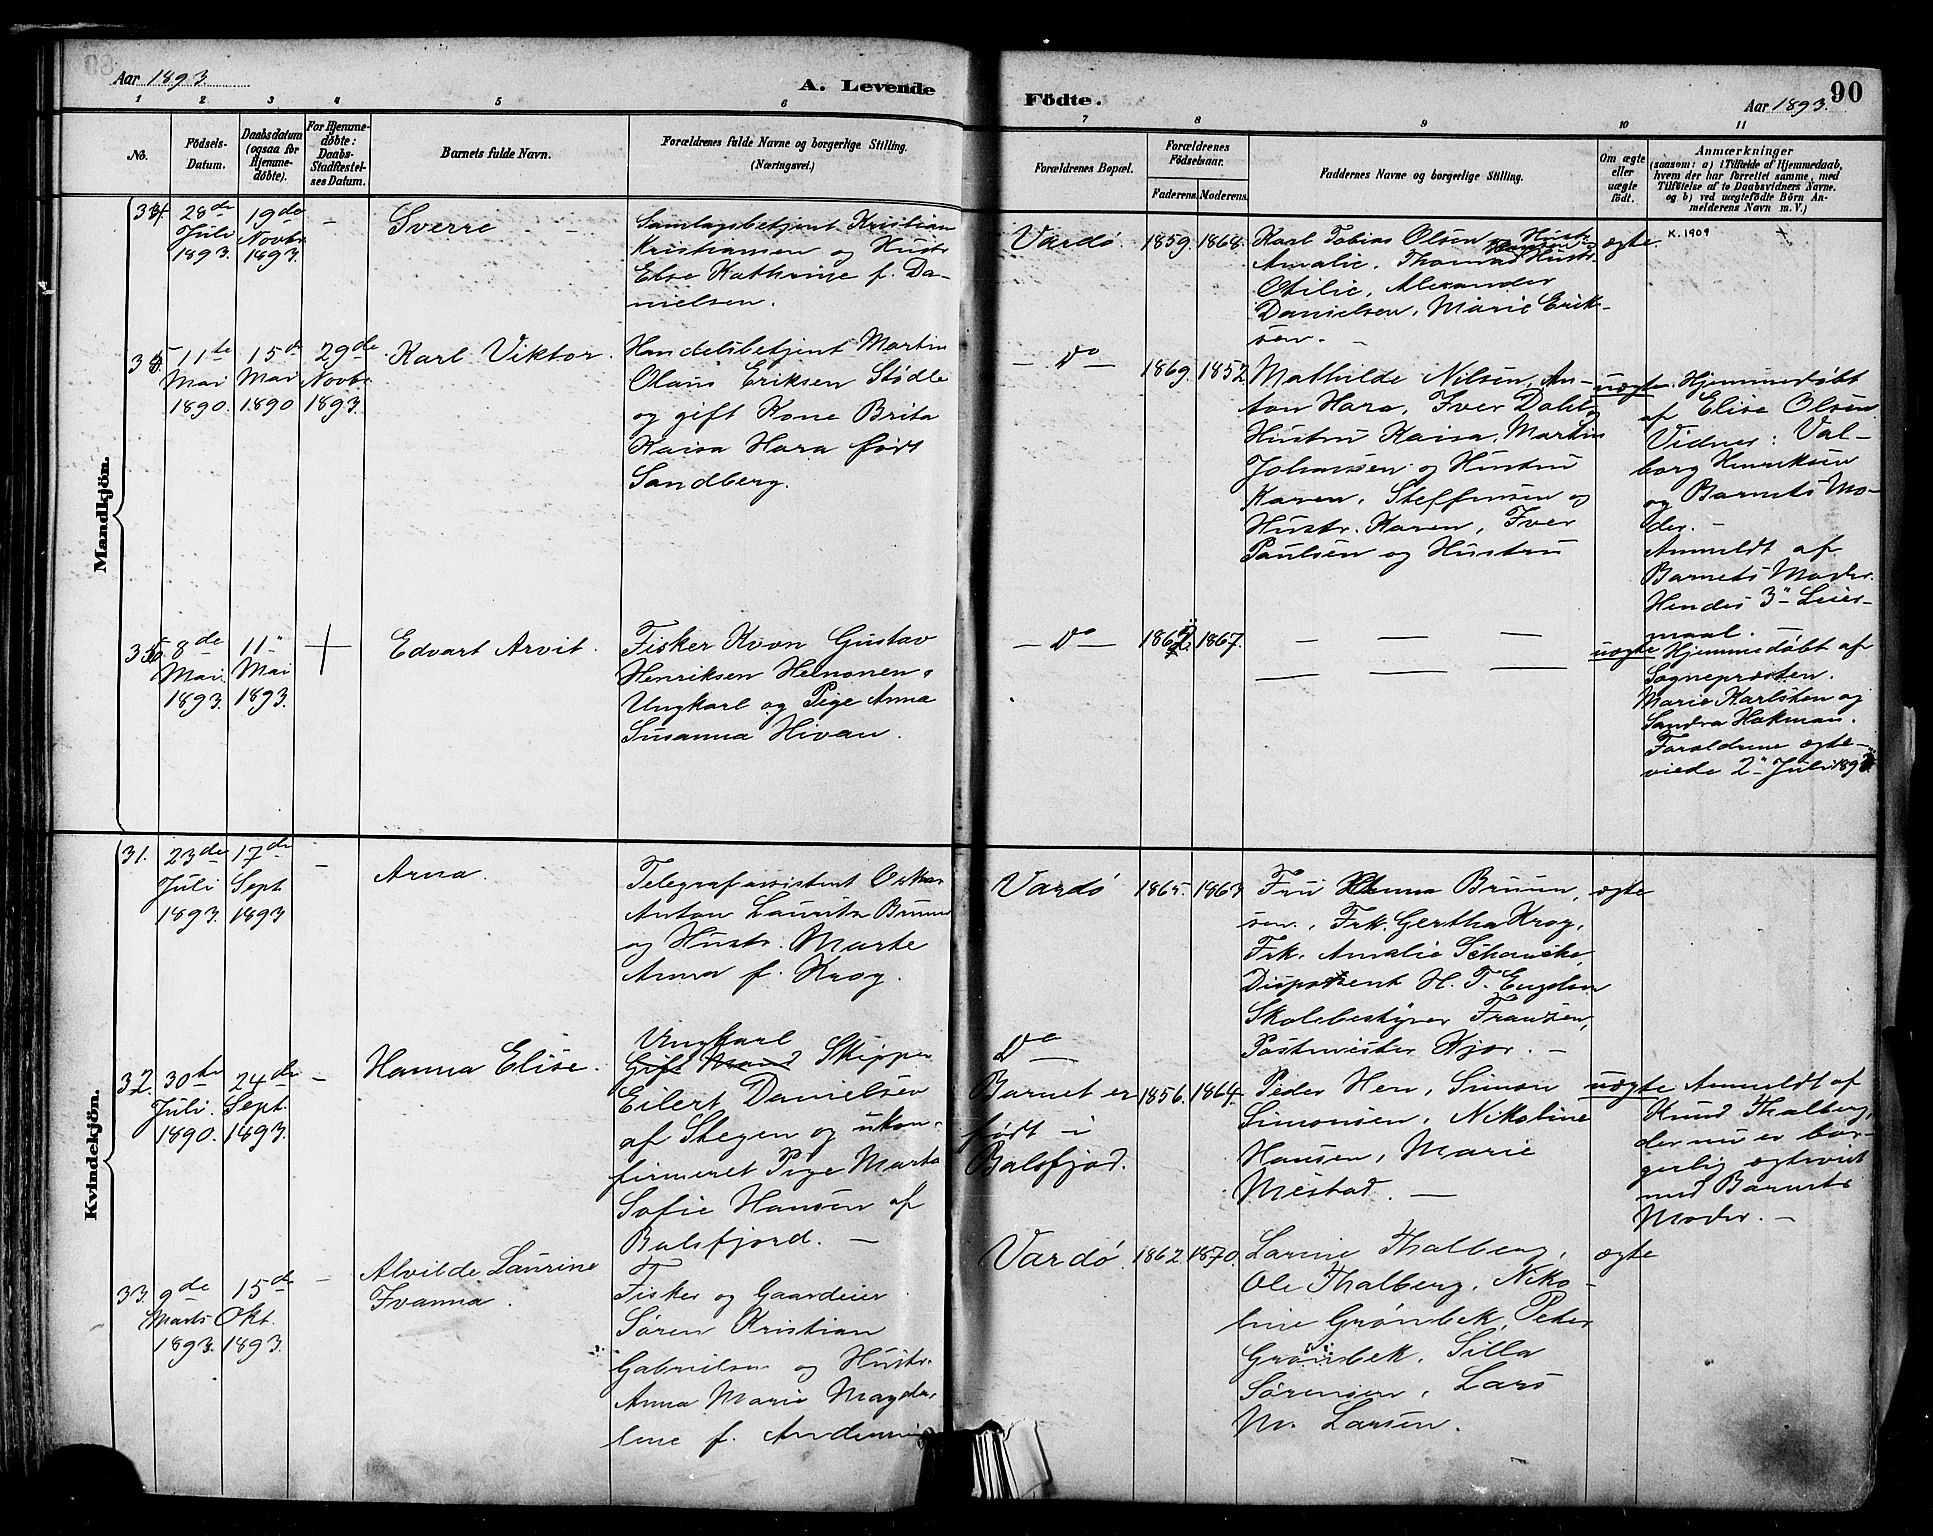 Aar 1893.
A. Levende
Födte.
90
Aar 1893.
1 2 3 4 5 6 7 8 9 10 11
No.
Födsels-
Datum.
Daabsdatum
(ogsaa for
Hjemme-
döbte).
For Hjemme-
döbte:
Daabs-
Stadfæstel-
ses Datum.
Barnets fulde Navn.
Forældrenes fulde Navne og borgerlige Stilling.
(Næringsvei.)
Forældrenes Bopæl.
Forældrenes
Födselsaar.
Faderens. Moderens.
Faddernes Navne og borgerlige Stilling.
Om ægte
eller
uægte
födt.
Anmærkninger
(saasom: a) i Tilfælde af Hjemmedaab,
hvem der har forrettet samme, med
Tilföielse af to Daabsvidners Navne.
og b) ved uægtefödte Börn An-
melderens Navn m. V.)
Mandkjön.
34.
28de
Juli
1893.
19de
Novbr.
1893.
–
Sverre
Samlagsbetjent Kristian
Kristiansen og Hustr.
Else Kathrine f. Da-
nielsen.
Vardø
1859.
1868.
Karl Tobias Olsen Hustr.
Amalie, Thomas Hustr.
Otilie, Alexander
Danielsen, Marie Erik-
sen. –
ægte.
K. 1909
35.
11te
Mai
1890.
15de
Mai
1890
29de
Novbr.
1893.
Karl Viktor.
Handelsbetjent Martin
Olaus Eriksen Stødle
og gift Kone Brita
Kaisa Hara født
Sandberg.
– Do –
1869.
1852
Mathilde Nilsen, An-
ton Hara, Iver Dahl og
Hustru Kaisa, Martin
Johansen og Hustru
Karen, Steffensen og
Hustr. Karen, Iver
Paulsen og Hustru
uægte.
Hjemmedøbt
af Elise Olsen
Vidner: Val-
borg Henriksen
og Barnets Mo-
der. –
Anmeldt af
Barnets Moder.
Hendes 3" Leier-
maal. –
8de
Mai
1893.
11"
Mai
1893.
Edvart Arvit.
Fisker Kvæn Gustav
Henriksen Heinonen,
Ungkarl og Pige Anna
Susanna Hivan.
– Do –
1867.
– – –
– – –
uægte
Hjemmedøbt af
Sognepræsten.
Marie Karlsten og
Sandra Hakman.
Forældrene ægte-
viede 2" Juli 1893
Kvindekjön.
31.
23de
Juli
1893.
17de
Sept
1893
–
Arna.
Telegrafassistent Oskar
Anton Lauritz Bruun
og Hustr. Marte
Anna f. Krog.
Vardø
1865.
1863
Fru Anna Bruun,
sen, Frk. Gertha Krog,
Frk. Amalie Schancke,
Disponent H. T. Engdan
Skolebestyrer Franzen,
Postmester Kjør. –
ægte
32.
30te
Juli.
1890.
24de
Sept.
1893.
–
Hanna Elise.
Ungkarl
Gift Mand Skipper
Eilert Danielsen
af Stegen og ukon-
firmeret Pige Marta
Sofie Hansen af
Balsfjord. –
Do
Barnet er
født i
Balsfjord.
1856.
1864.
Peder Hen, Simon
Simonsen, Nikoline
Hansen, Marie
Mestad. –
uægte
Anmeldt af
Knud Thalberg,
der nu er bor-
gerlig ægteviet
med Barnets
Moder. –
33.
9de
Marts
1893.
15de
Okt.
1893.
–
Alvilde Laurine
Ivanna.
Fisker og Gaardeier
Søren Kristian
Gabrielsen og Hustr.
Anna Marie Magda-
lene f. Andersen
Vardø.
1862.
1870.
Larine Thalberg,
Ole Thalberg, Niko-
line Grønbek, Peder
Grønbek, Silla
Sørensen, Lars
M. Larsen.
ægte